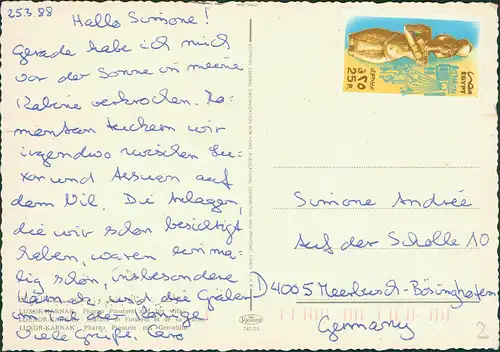 25.3.88
Hallo Simone!
Gerade habe ich mich
vor der Sonne in meine
Kabine verkrochen. Mo-
mentan tuckern wir
irgendwo zwischen Lu-
xor und Assuan auf
dem Nil. Die Anlagen,
die wir schon besichtigt
haben, waren einma-
lig schön, insbesondere
Karnak und die Gräber
im Tal der Könige
Viele Grüße,
LUXOR-KARNAK
LUXOR-KARNAK
EGYPT
مصر
25 P.
Simone Andrée
Auf der Scholle 10
D 4005 Meerbusch-Bösinghoven
Germany
2